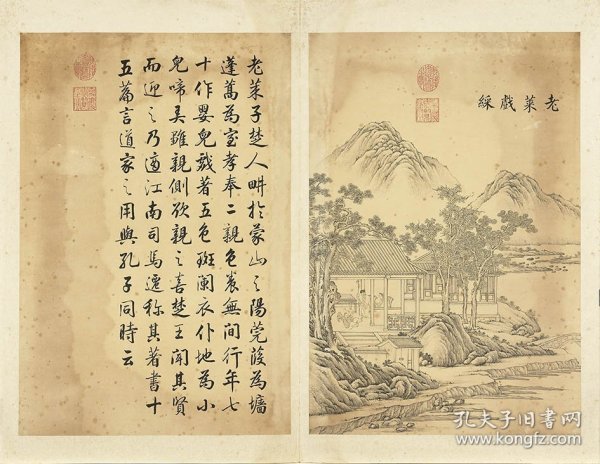 老萊戲綵
老萊子楚人畊扵蒙山之陽莞葭為墻
蓬蒿為室孝奉二親色養無間行年七
十作嬰兒戲著五色斑闌衣仆地為小
兒啼弄雛親側欲親之喜楚王聞其賢
而迎之乃適江南司馬遷称其著書十
五篇言道家之用與孔子同時云
孔夫子旧书网
www.kongfz.com